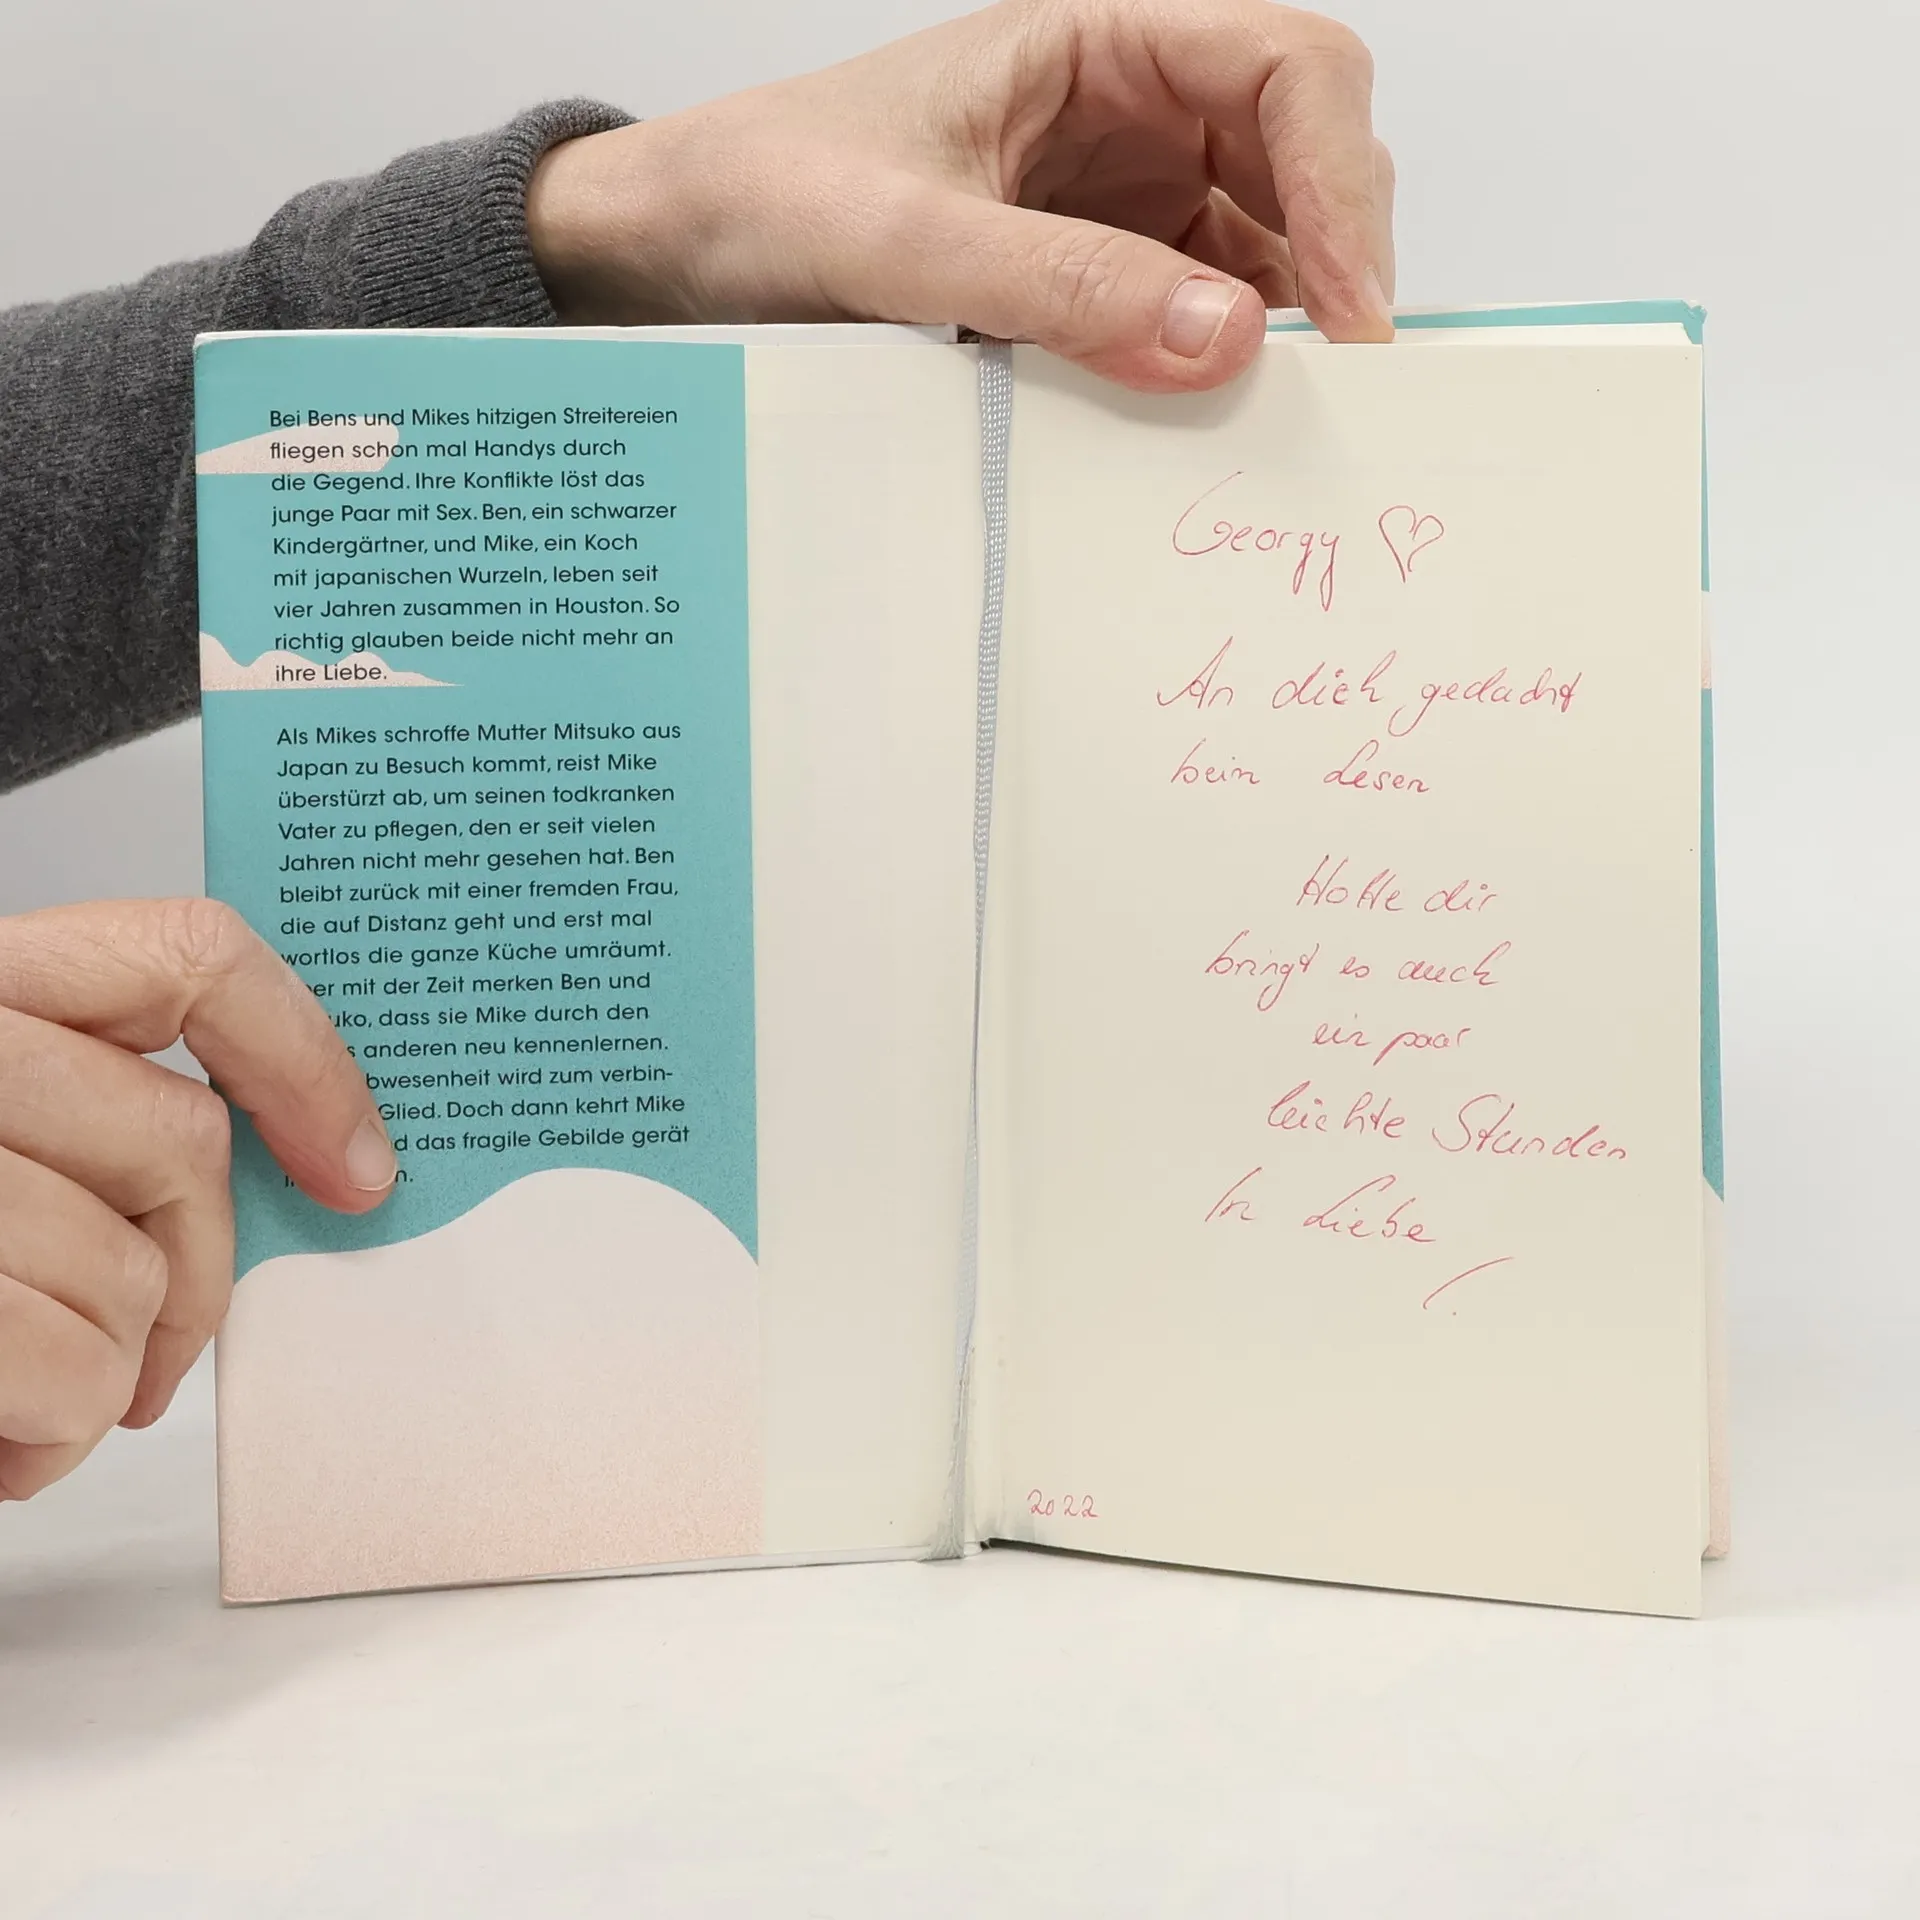 Bei Bens und Mikes hitzigen Streitereien
fliegen schon mal Handys durch
die Gegend. Ihre Konflikte löst das
junge Paar mit Sex. Ben, ein schwarzer
Kindergärtner, und Mike, ein Koch
mit japanischen Wurzeln, leben seit
vier Jahren zusammen in Houston. So
richtig glauben beide nicht mehr an
ihre Liebe.
Als Mikes schroffe Mutter Mitsuko aus
Japan zu Besuch kommt, reist Mike
überstürzt ab, um seinen todkranken
Vater zu pflegen, den er seit vielen
Jahren nicht mehr gesehen hat. Ben
bleibt zurück mit einer fremden Frau,
die auf Distanz geht und erst mal
wortlos die ganze Küche umräumt.
er mit der Zeit merken Ben und
uko, dass sie Mike durch den
s anderen neu kennenlernen.
bwesenheit wird zum verbin-
Glied. Doch dann kehrt Mike
d das fragile Gebilde gerät
n.
Georgy ♡
An dich gedacht
beim Lesen
Hoffe dir
bringt es auch
ein paar
leichte Stunden
In Liebe
2022